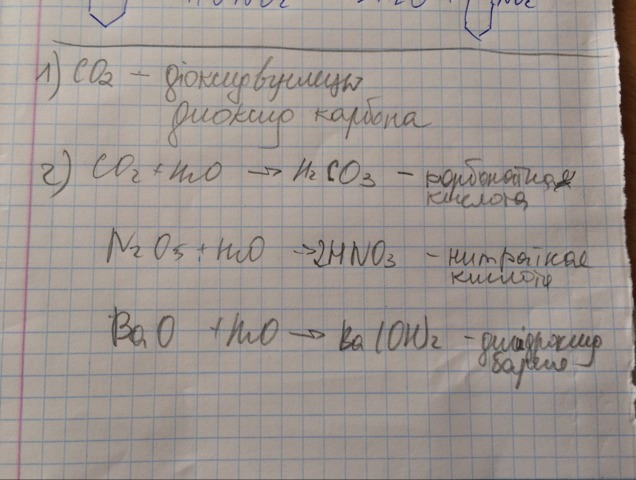 NO2
1) CO2 – діоксидвуглецю
диоксид карбона
2) CO2 + H2O → H2CO3 – карбонатная
кислота
N2O5 + H2O → 2HNO3 – нитратная
кислота
BaO + H2O → Ba(OH)2 – дигидроксид
бария